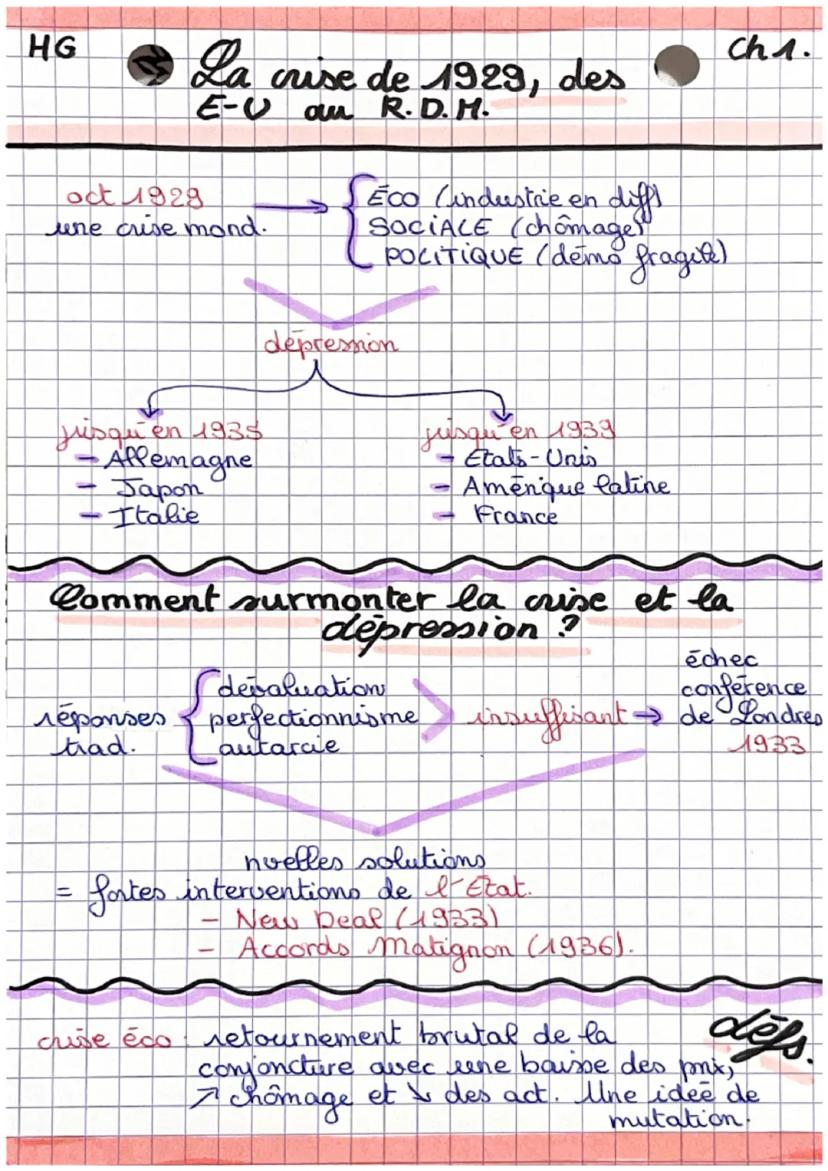 HG
Ch 1.
La crise de 1929, des
E-U au R.D.M.
oct 1929 → ÉCO (industrie en diff)
une crise mond. SOCIALE (chômage)
POLITIQUE (démo fragile)
dépression
jusqu'en 1935
- Allemagne
- Japon
- Italie
jusqu'en 1939
- États-Unis
- Amérique latine
- France
Comment surmonter la crise et la
dépression ?
réponses
trad.
dévaluation
perfectionnisme
autarcie
insuffisant →
échec
conférence
de Londres
1933
nvelles solutions
= fortes interventions de l'État.
- New Deal (1933)
- Accords Matignon (1936).
défs.
crise éco : retournement brutal de la
conjoncture avec une baisse des prix,
↗ chômage et ↘ des act. Une idée de
mutation.